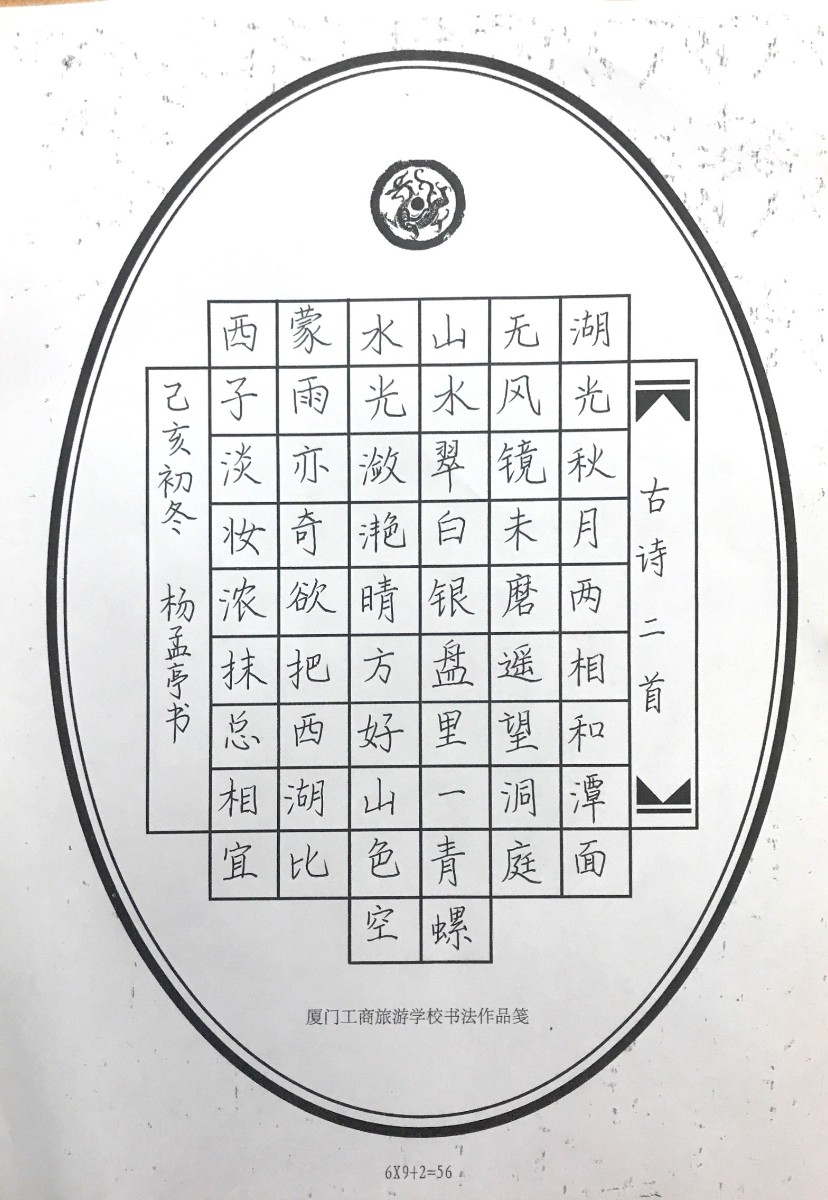 古诗二首
湖光秋月两相和潭面
无风镜未磨遥望洞庭
山水翠白银盘里一青螺
水光潋滟晴方好山色空
蒙雨亦奇欲把西湖比
西子淡妆浓抹总相宜
己亥初冬 杨孟亭书
厦门工商旅游学校书法作品笺
6X9+2=56